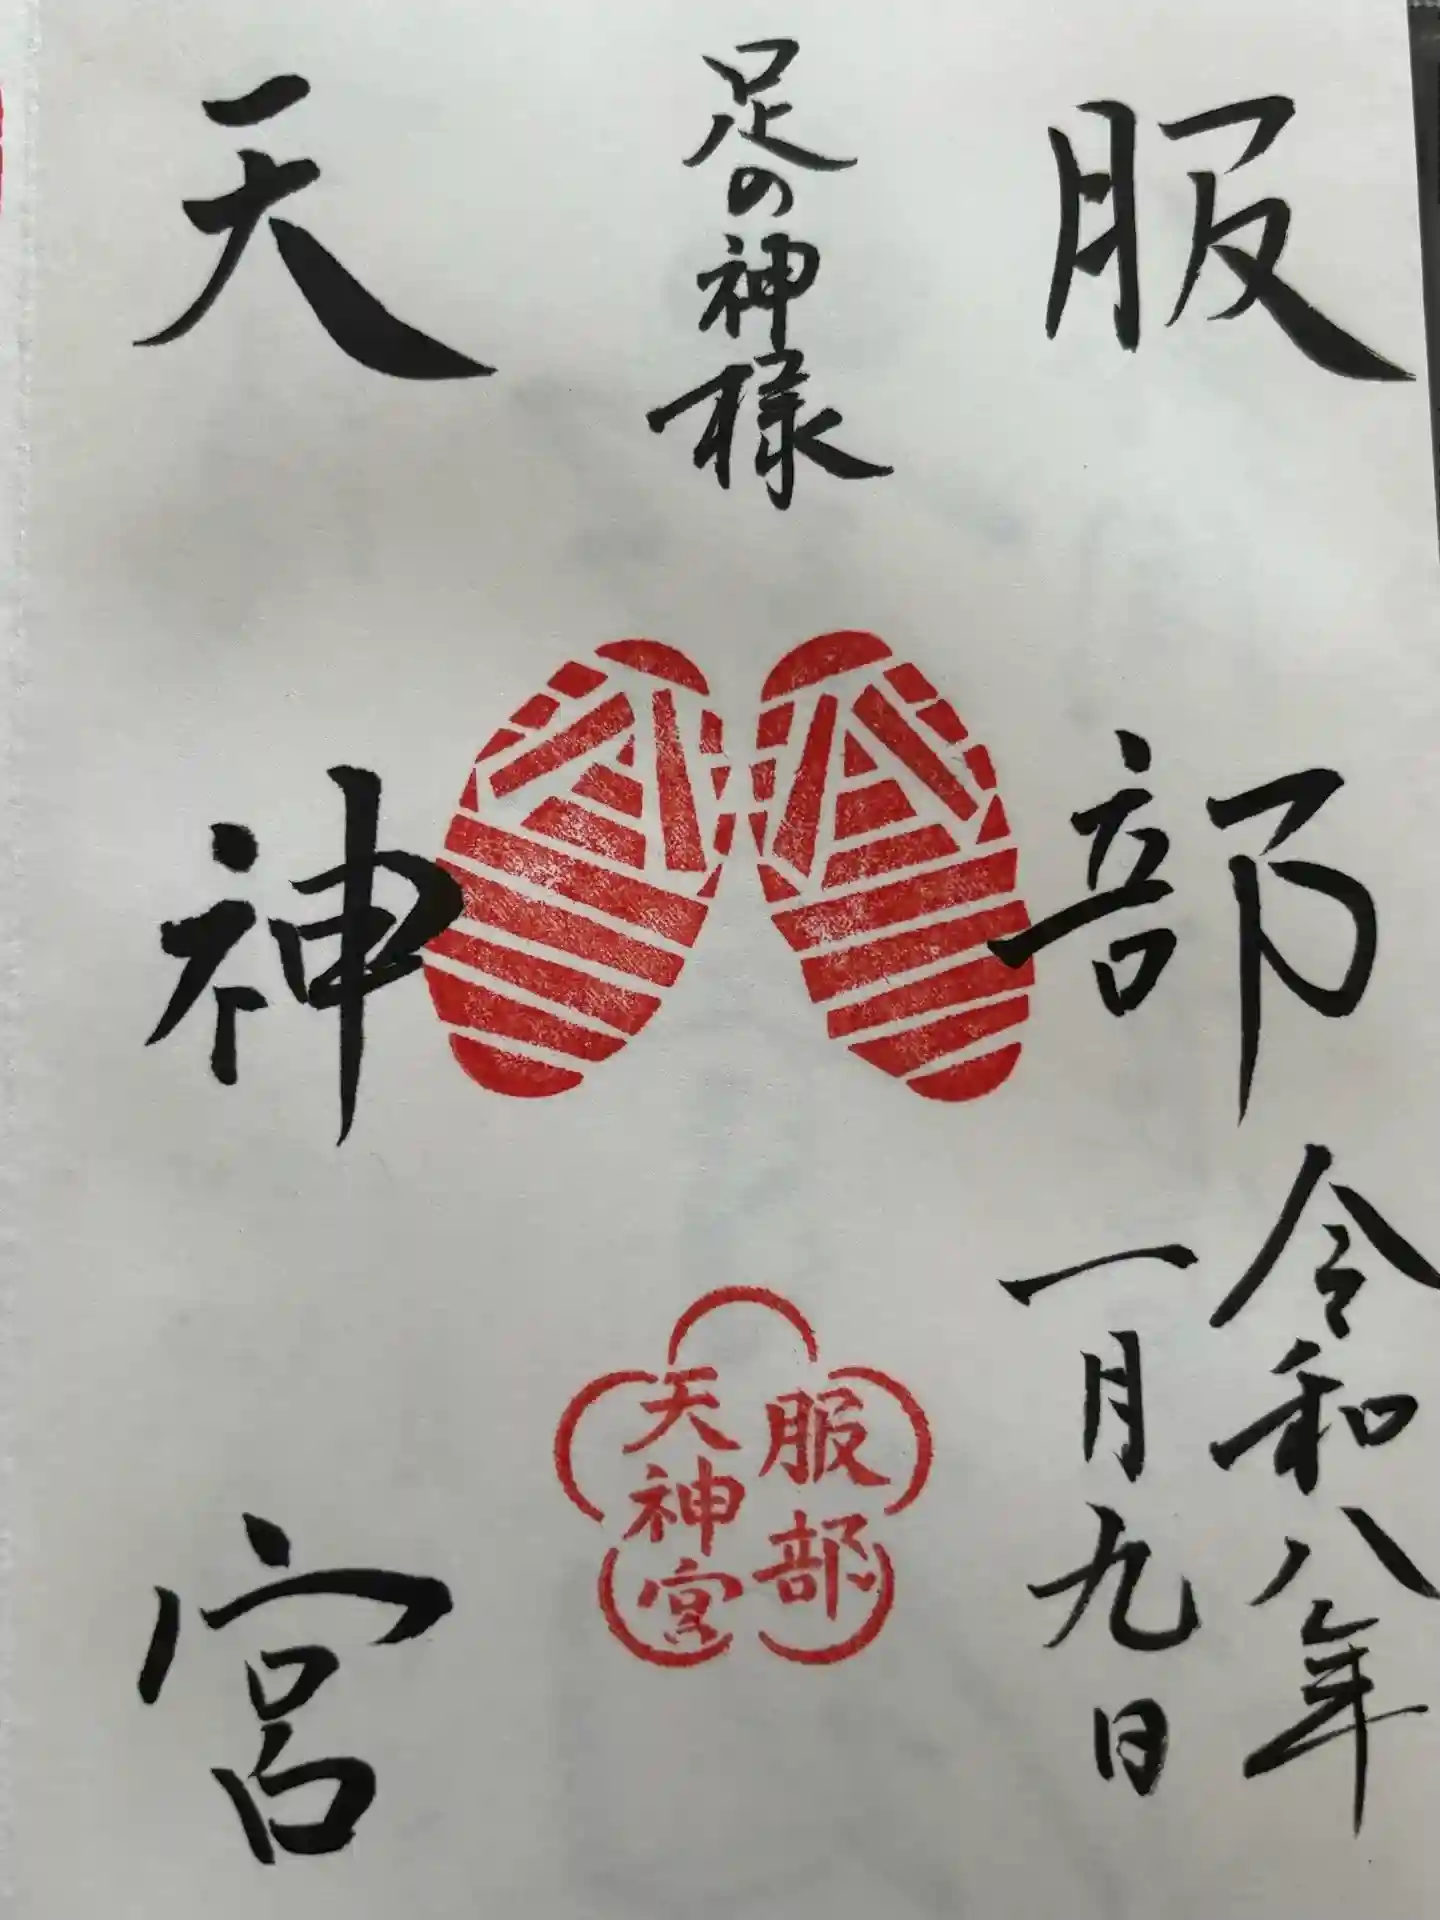 服部
令和八年
一月九日
足の神様
服部
天神宮
天神宮